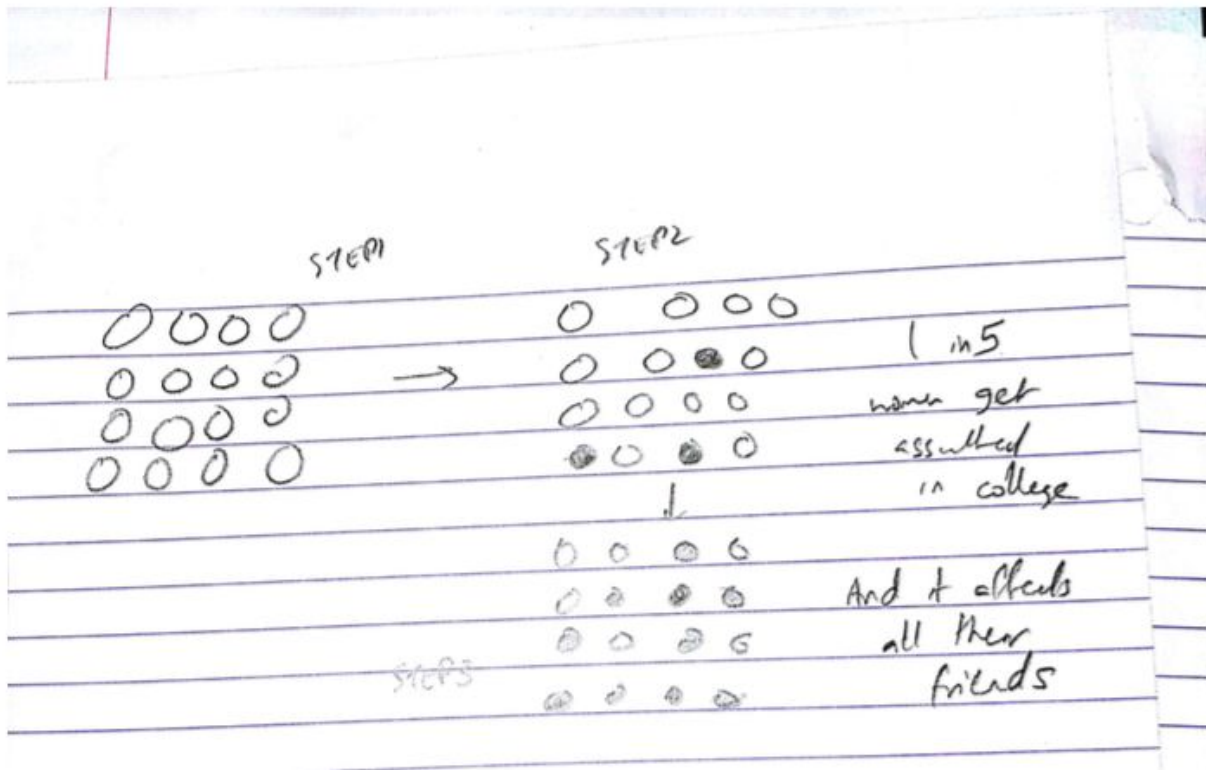 STEP1
STEP2
1 in 5
women get
assulted
in college
And it affects
all their
friends
STEP3